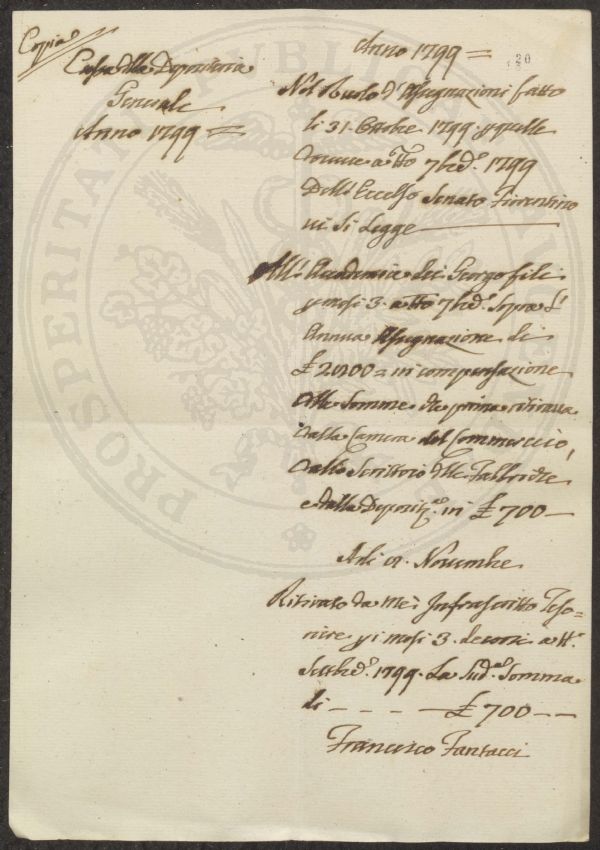 Copia
Cassa della Depositeria
Generale
Anno 1799 =
Anno 1799 =
20
Nel Ruolo d'Assegnazioni fatto
li 31. Ottobre 1799 p quelle
decorse a tto 7bre. 1799
Dell' Eccelso Senato Fiorentino
vi si Legge
All' Accademia dei Georgofili
p mesi 3. a tto 7bre. Sopra L'
Annua Assegnazione di
£ 2800 = in compensazione
delle Somme che prima ritirava
dalla Camera del Commercio,
dallo Scrittoio delle Fabbriche
e dalla Deposit.a in £ 700 —
A di Novembre
Ritirato da Me Infrascritto Teso-
riere p i mesi 3. decorsi a tt.o
Settbre. 1799. La Sud.a Somma
di — — — — £ 700 — —
Francesco Fantacci
PROSPERITATI PUBLICAE